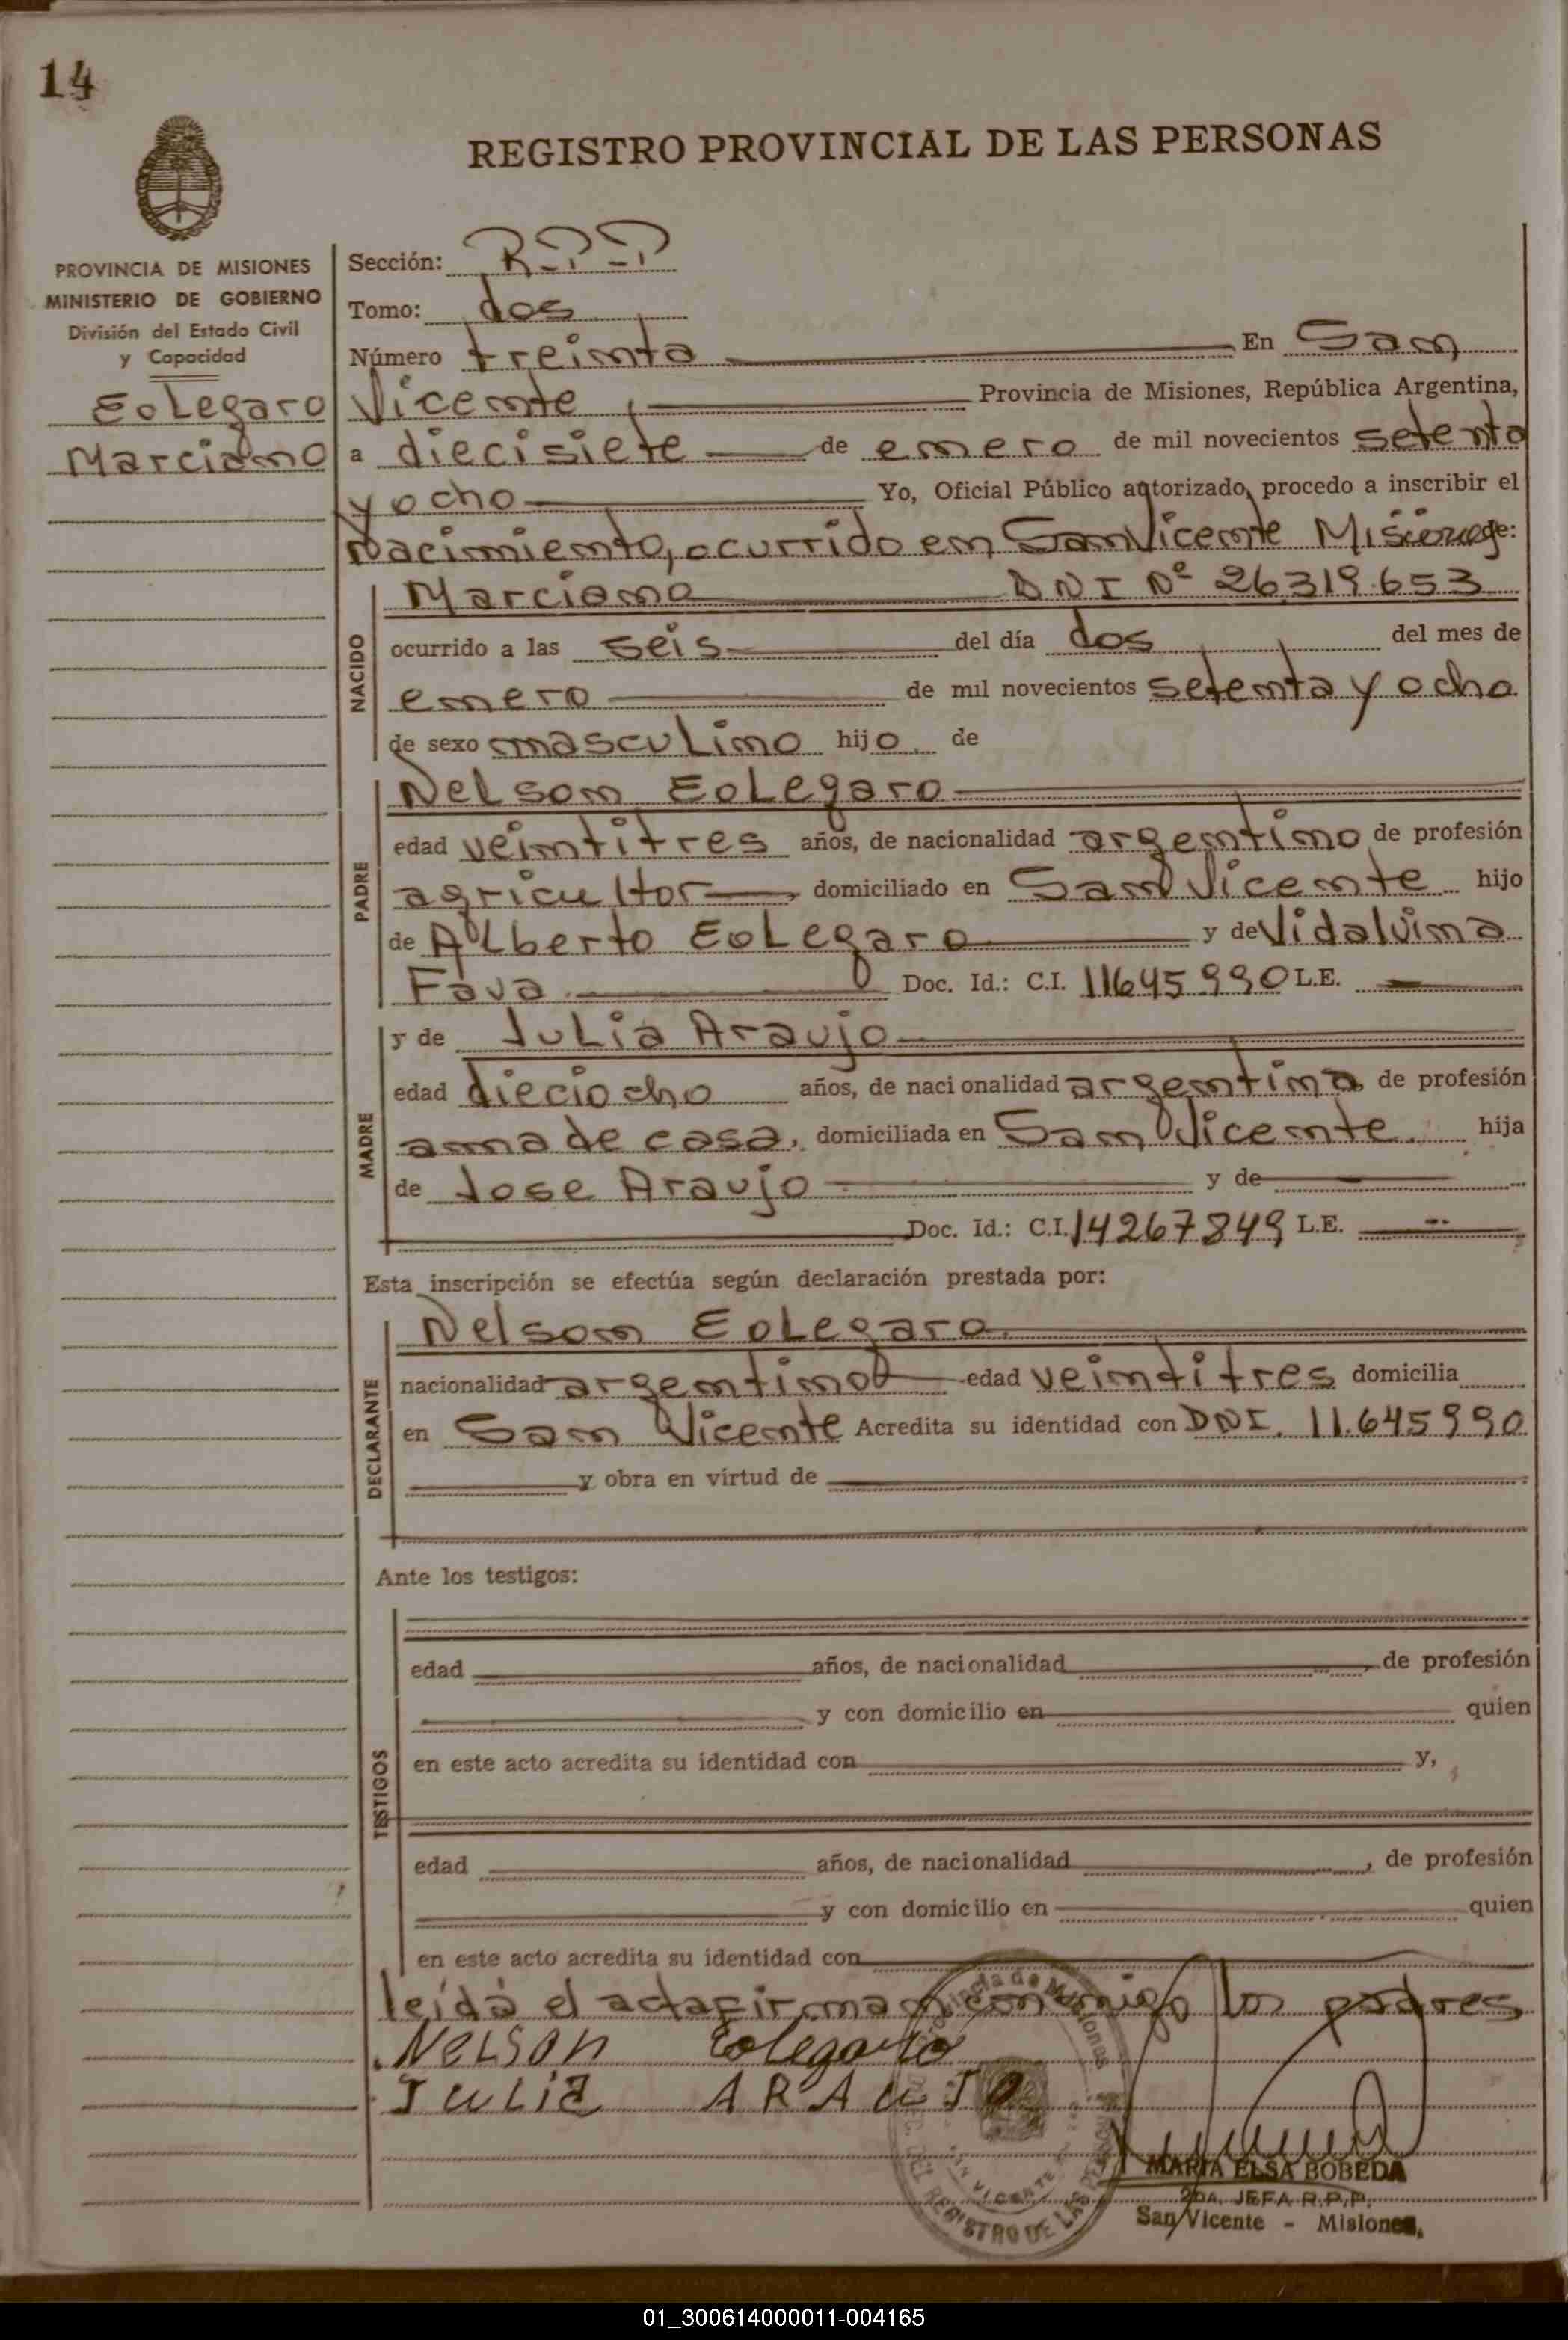 14
REGISTRO PROVINCIAL DE LAS PERSONAS
PROVINCIA DE MISIONES
MINISTERIO DE GOBIERNO
División del Estado Civil
y Capacidad
Eolegaro
Marciano
Sección: R.P.P
Tomo: dos
Número treinta En San
Vicente, Provincia de Misiones, República Argentina,
a diecisiete de enero de mil novecientos setenta
y ocho Yo, Oficial Público autorizado, procedo a inscribir el
Nacimiento, ocurrido en San Vicente Misiones de:
NACIDO
Marciano DNI Nº 26.319.653
ocurrido a las seis del día dos del mes de
enero de mil novecientos setenta y ocho
de sexo masculino hijo de
PADRE
Nelson Eolegaro
edad veintitres años, de nacionalidad argentino de profesión
agricultor, domiciliado en San Vicente hijo
de Alberto Eolegaro y de Vidalvina
Fava Doc. Id.: C.I. 11645990 L.E.
MADRE
y de Julia Araujo
edad dieciocho años, de nacionalidad argentina de profesión
ama de casa, domiciliada en San Vicente. hija
de Jose Araujo y de
Doc. Id.: C.I. 14267849 L.E.
Esta inscripción se efectúa según declaración prestada por:
DECLARANTE
Nelson Eolegaro
nacionalidad argentino edad veintitres domicilia
en San Vicente Acredita su identidad con DNI. 11.645990
y obra en virtud de
Ante los testigos:
TESTIGOS
edad años, de nacionalidad de profesión
y con domicilio en quien
en este acto acredita su identidad con y,
edad años, de nacionalidad, de profesión
y con domicilio en quien
en este acto acredita su identidad con
leida el acta firman conmigo los padres
Nelson Eolegario
Julia ARAUJO
Provincia de Misiones
SAN VICENTE
REGISTRO DE LAS PERSONAS
MARIA ELSA BOBEDA
2DA. JEFA R.P.P.
San Vicente - Misiones,
01_300614000011-004165